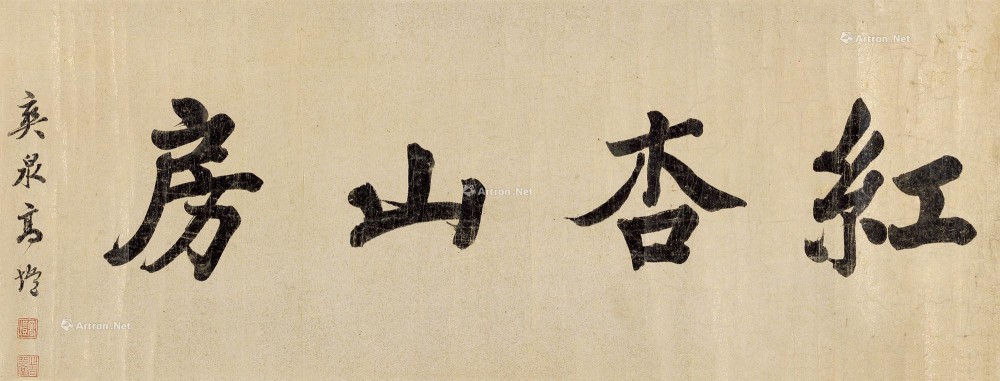 紅杏山房
爽泉高塏
Artron.Net
Artron.Net
Artron.Net